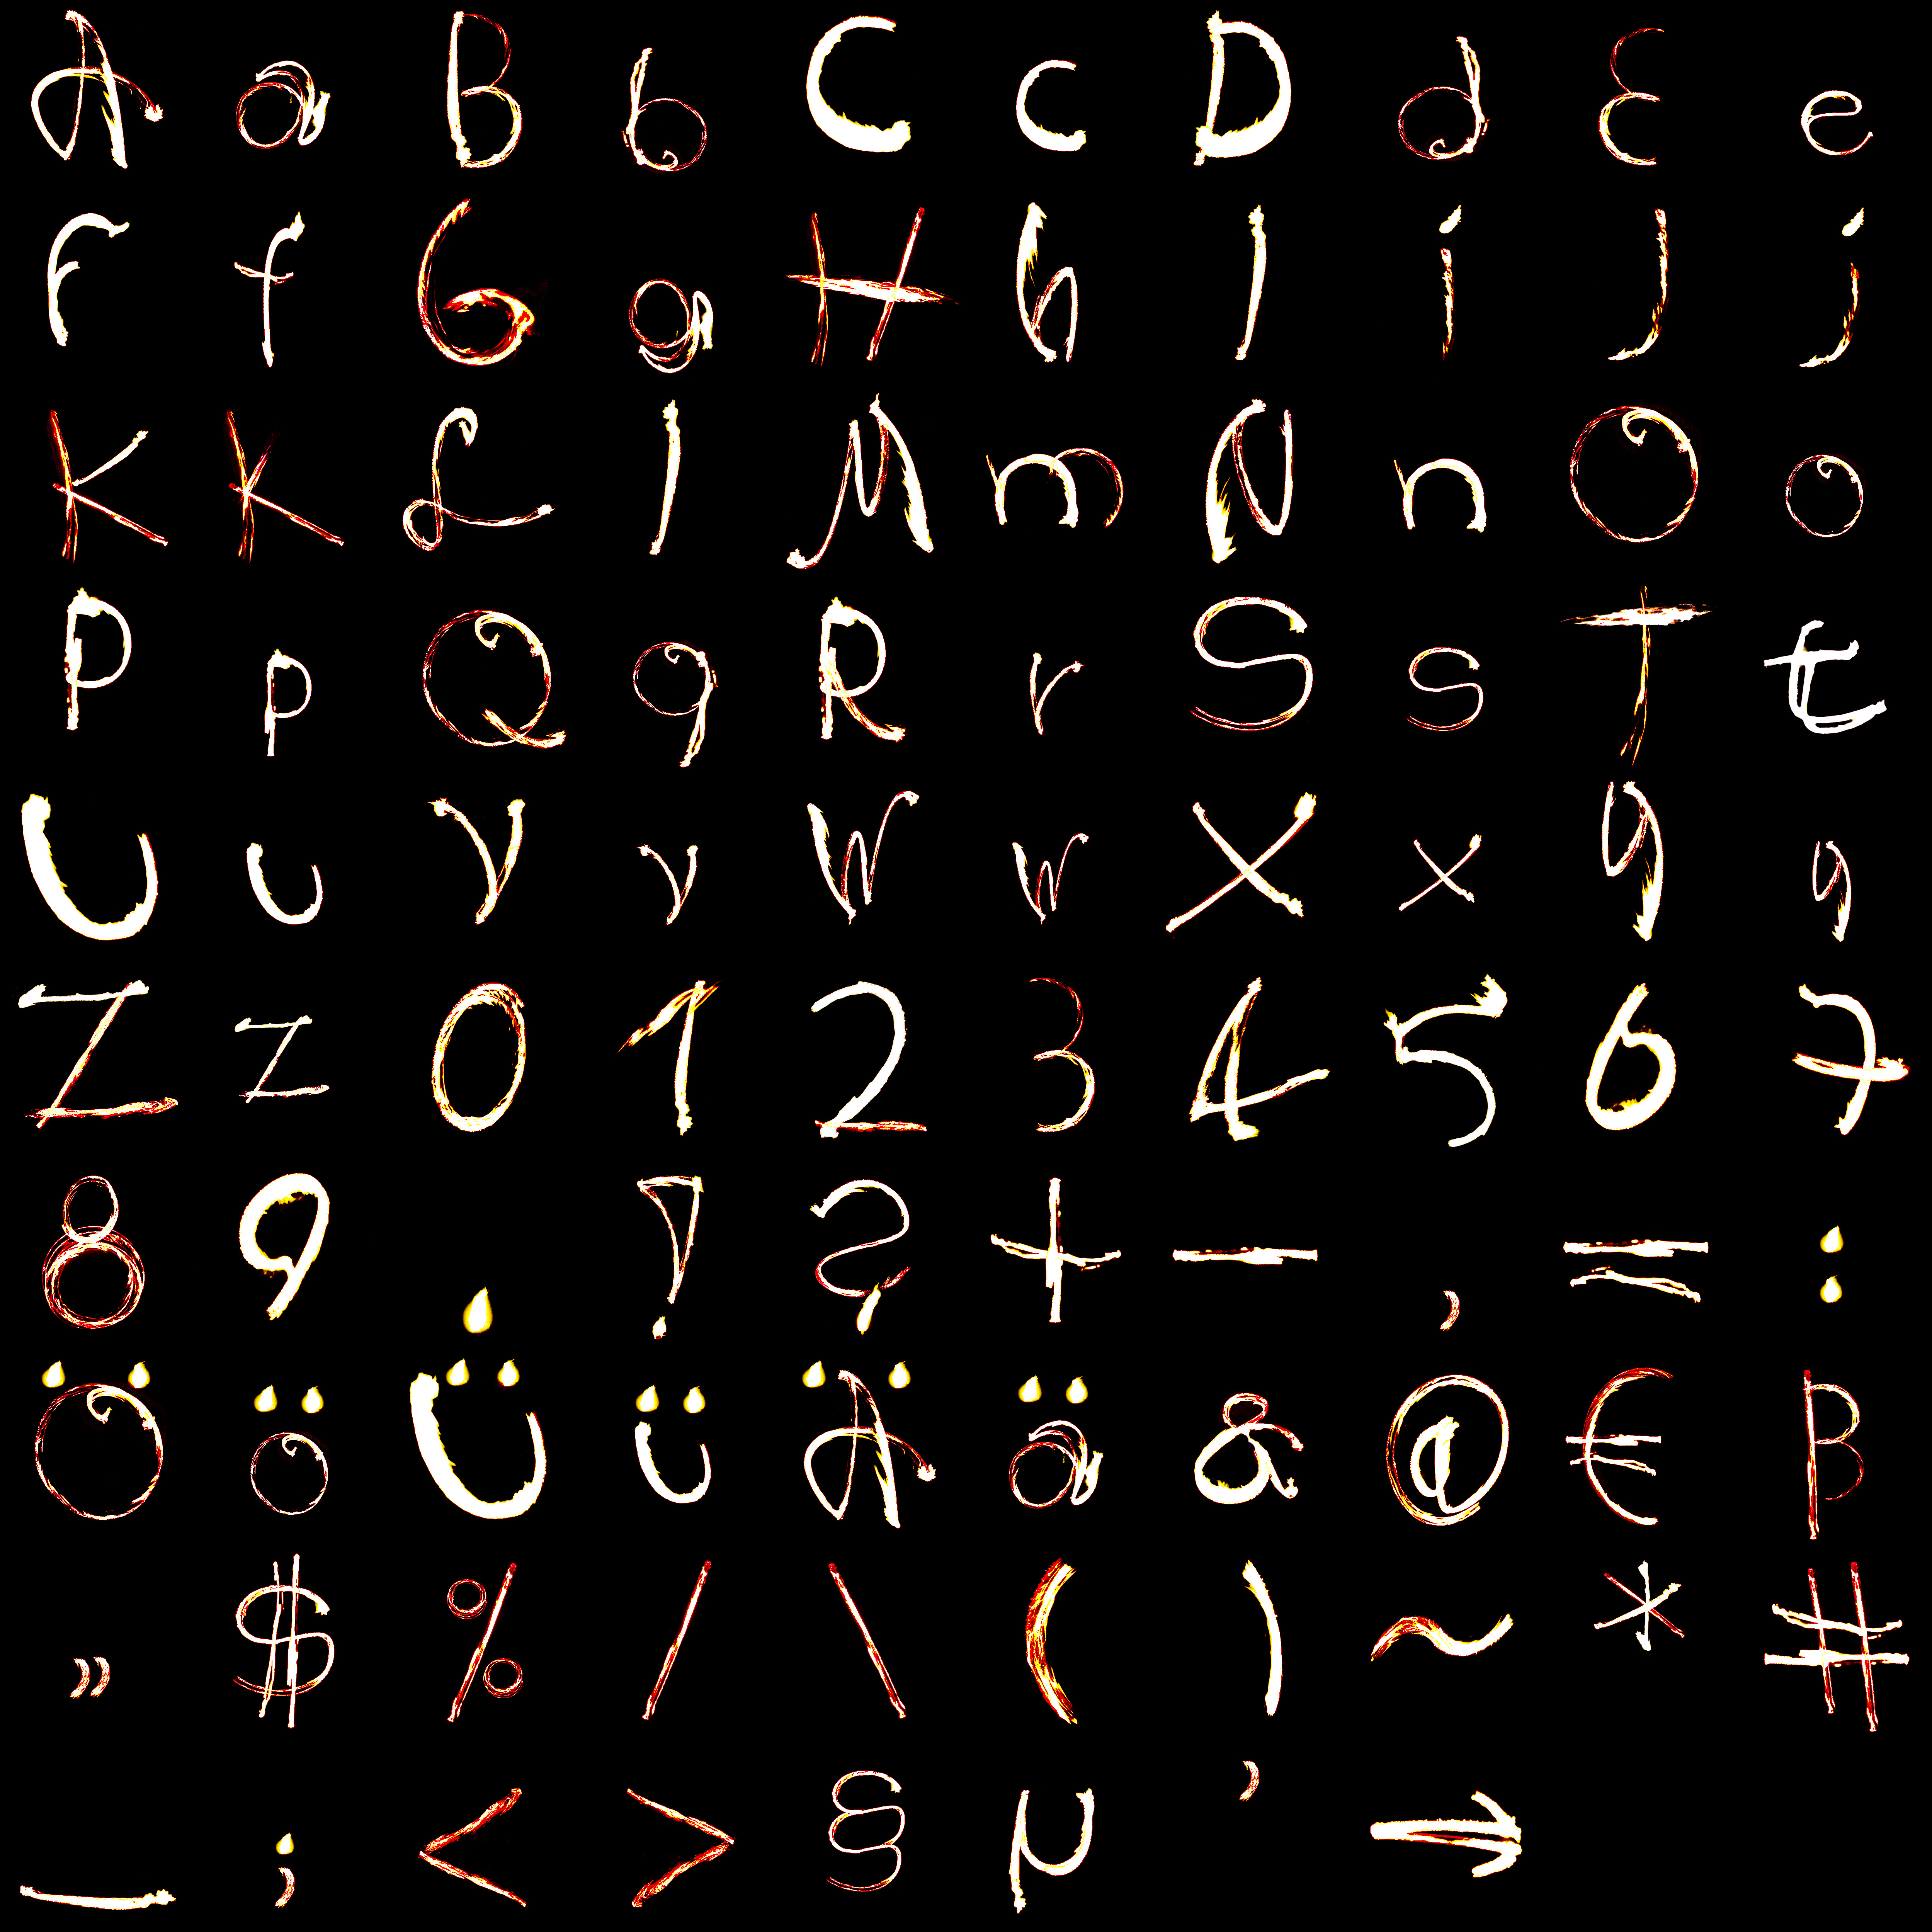 A a B b C c D d E e
F f G g H h I i J j
K k L l M m N n O o
P p Q q R r S s T t
U u V v W w X x Y y
Z z 0 1 2 3 4 5 6 7
8 9 . ! ? + - , = :
Ö ö Ü ü Ä ä & @ € ß
" $ % / \ ( ) ~ * #
_ ; < > § µ ' →